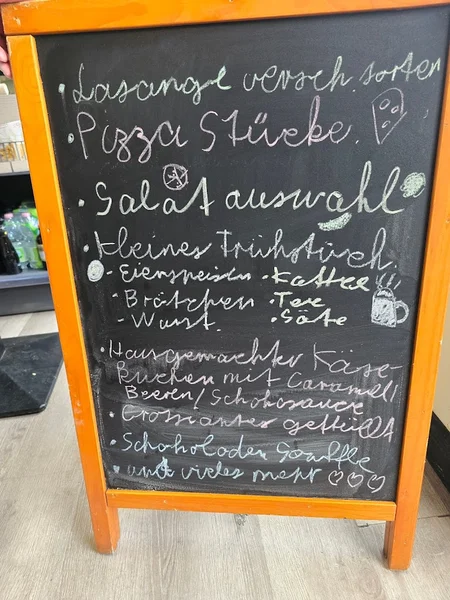 · Lasange versch. sorten
· Pizza Stücke.
· Salat auswahl
· kleines Frühstück
· Eierspeisen · Kaffee
- Brötchen · Tee
- Wurst. · Säfte
· Hausgemachter Käse-
Kuchen mit Caramell/
Beeren/Schokosauce
· Crossantes gefüllt
· Schokoladen Souffle
· und vieles mehr ♡♡♡